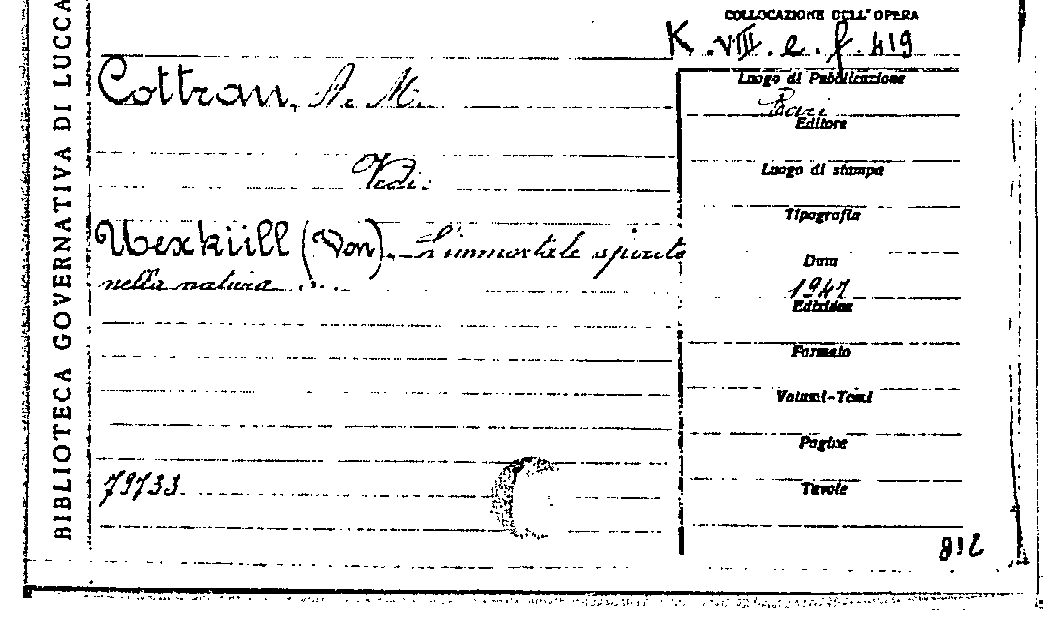 BIBLIOTECA GOVERNATIVA DI LUCCA
COLLOCAZIONE DELL'OPERA
K. VIII. e. f. 419
Cottrau, A. M.
Vedi:
Uexküll (Von). L'immortale spirito
nella natura ....
79733
Luogo di Pubblicazione
Bari
Editore
Luogo di stampa
Tipografia
Data
1947
Edizione
Formato
Volumi-Tomi
Pagine
Tavole
812